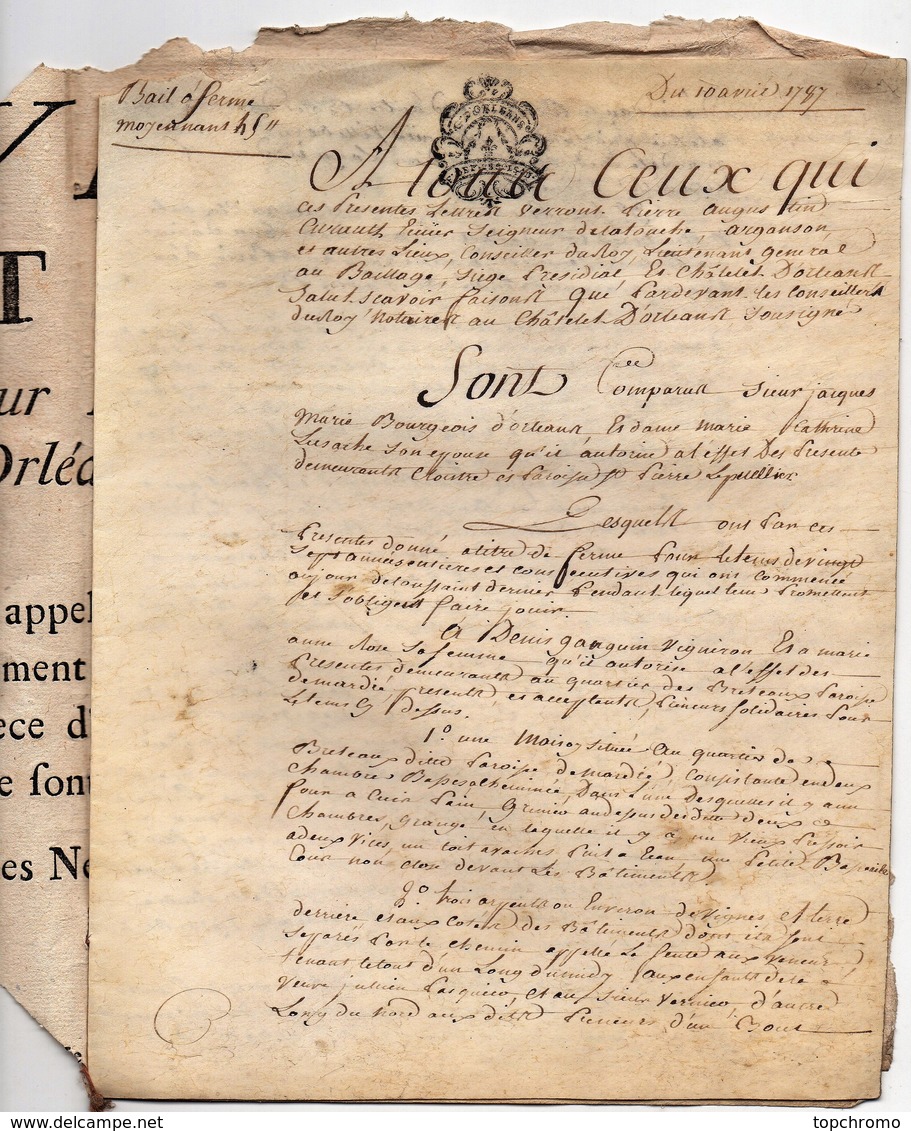 Bail à ferme
moyennant 45 ᵗᵗ
Du 10 avril 1787
D'ORLEANS
A Tous Ceux qui
ces Presentes Lettres verront Pierre augustin
Curault Ecuier Seigneur de la touche, arganson,
et autres Lieux, Conseiller du Roy, Lieutenant general
au Baillage, Siege Presidial Et Châtelet D'orleans
Salut scavoir faisons que Pardevant les Conseillers
du Roy Notaires au Châtelet D'orleans Soussignés
Sont Comparus sieur jacques
Marie Bourgeois d'orleans Et dame marie Cathrine
son epouse qu'il autorise a l'effet Des Presente
demeurants Cloitre et Paroisse St Pierre
Lesquels ont Par ces
Presentes donné a titre de ferme Pour le tems de vingt
Sept années entieres et consecutives qui ont commencé
au jour de toussaint dernier Pendant lequel tems Promettent
et s'obligent faire jouir
A Denis ganguin vigneron Et a marie
anne Rose sa femme qu'il autorise a l'effet des
Presentes demeurants au quartier des Breteaux Paroisse
de mardié, Presents et acceptants, Preneurs solidaires Pour
Le tems cy dessus.
1º une Maison située au quartier de
Breteaux ditte Paroisse de mardié, Consistante en deux
chambres Basses a cheminée, Dans l'une Desquelles il y a un
four a Cuir Pain, Grenier au dessus desdittes deux
Chambres, grange, en laquelle il y a un vieux Pressoir
a deux vices, un toit a vaches Puit a Eau une Petite
Cour non close devant Les Bâtiments,
2º trois arpents ou Environ de vignes et terre
derriere et aux costés des Bâtiments dont ils sont
sepparés Par le chemin appellé Le sente aux veneurs
tenant le tout d'un Long du midy aux enfants de la
veuve jullien Pasquier, et au sieur vernier, d'autre
Long du nord aux dits Preneurs d'un Bout
Y
T
ur
Orléa
appel
ment
ece d'
e sont
es Ne
topchromo